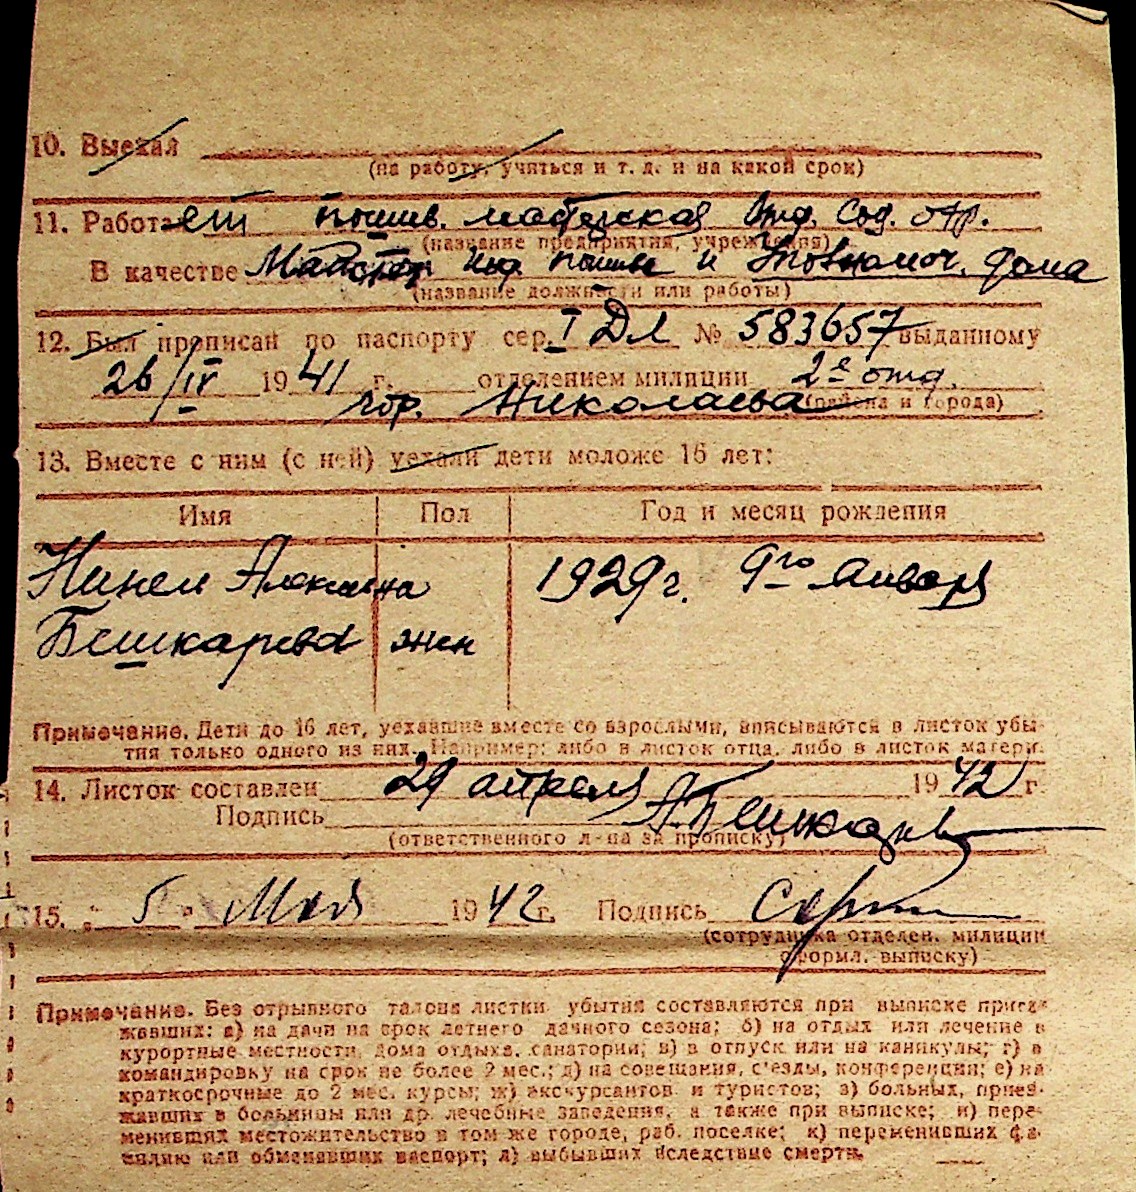 10. Выехал
(на работу, учиться и т. д. и на какой срок)
11. Работает пошив. мастерская Отд. Сод. отр.
(название предприятия, учреждения)
В качестве Мастер инд. пошив и Уполномоч. дома
(название должности или работы)
12. Был прописан по паспорту сер. I ДЛ № 583657 выданному
26/IV 1941 г. отделением милиции 2е отд.
гор. Николаева (района и города)
13. Вместе с ним (с ней) уехали дети моложе 16 лет:
Имя Пол Год и месяц рождения
Нинель 1929 г. 9го января
Бешкарева жен
Примечание. Дети до 16 лет, уехавшие вместе со взрослыми, вписываются в листок убы-
тия только одного из них. Например: либо в листок отца, либо в листок матери.
14. Листок составлен 29 апреля 1942 г.
Подпись А. Бешкарев
(ответственного л-ца за прописку)
15. „5" Мая 1942 г. Подпись
(сотрудника отделен. милиции
оформл. выписку)
Примечание. Без отрывного талона листки убытия составляются при выписке приез-
жавших: а) на дачи на срок летнего дачного сезона; б) на отдых или лечение в
курортные местности, дома отдыха, санатории; в) в отпуск или на каникулы; г) в
командировку на срок не более 2 мес.; д) на совещания, с'езды, конференции; е) на
краткосрочные до 2 мес. курсы; ж) экскурсантов и туристов; з) больных, приез-
жавших в больницы или др. лечебные заведения, а также при выписке; и) пере-
менивших местожительство в том же городе, раб. поселке; к) переменивших фа-
милию или обменявших паспорт; л) выбывших вследствие смерти.